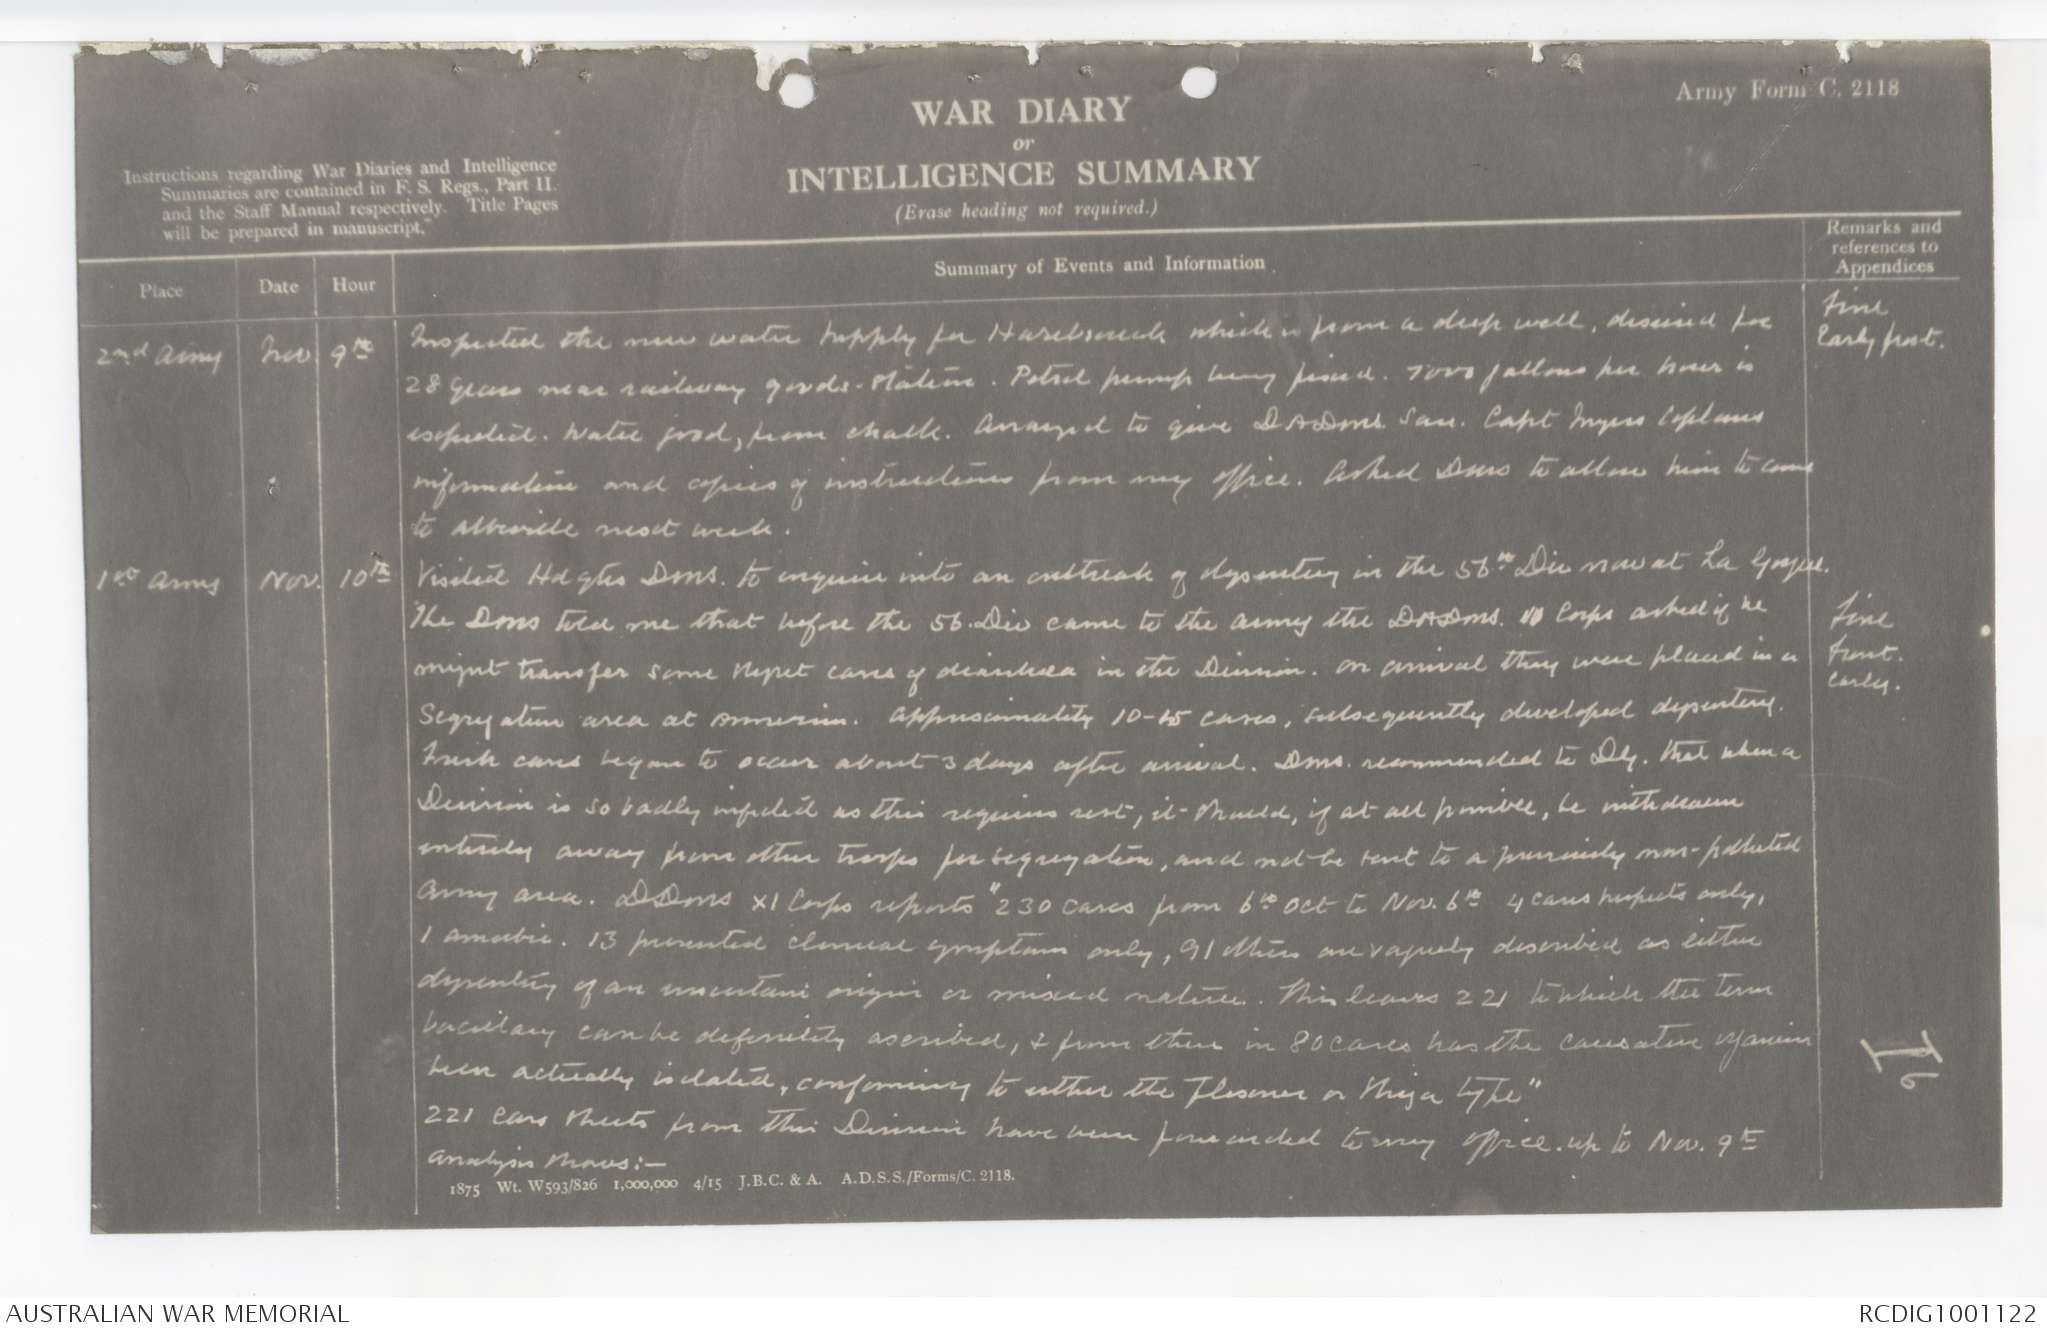 Army Form C. 2118
WAR DIARY
or
INTELLIGENCE SUMMARY
(Erase heading not required.)
Instructions regarding War Diaries and Intelligence
Summaries are contained in F. S. Regs., Part II.
and the Staff Manual respectively. Title Pages
will be prepared in manuscript.
Place
Date
Hour
Summary of Events and Information
Remarks and
references to
Appendices
2nd Army Nov. 9th
Inspected the new water supply for Hazebrouck which is from a deep well, disused for
28 years near railway goods-station. Petrol pump being fixed. 7000 gallons per hour is
expected. Water good, from chalk. Arranged to give DADMS San. Capt Myers Coplans
information and copies of instructions from my office. Asked DMS to allow him to come
to Abbeville next week.
Fine
Early frost.
1st Army Nov. 10th
Visited Hdqtrs DMS. to inquire into an outbreak of dysentery in the 56th Div now at La Gorgue.
The DMS told me that before the 56. Div came to the army the DADMS. Corps asked if he
might transfer some slight cases of diarrhoea in the Division. On arrival they were placed in a
Segregation area at . Approximately 10-15 cases, subsequently developed dysentery.
Fresh cases began to occur about 3 days after arrival. DMS. recommended to that when a
Division is so badly infected as this requires rest, it should, if at all possible, be withdrawn
entirely away from other troops for segregation, and not be sent to a previously non-polluted
army area. DDMS XI Corps reports "230 cases from 6th Oct to Nov. 6th 4 cases suspects only,
1 amoebic. 13 presented clinical symptoms only, 91 others are vaguely described as either
dysentery of an uncertain origin or mixed nature. This leaves 221 to which the term
bacillary can be definitely ascribed, & from these in 80 cases has the causative organism
been actually isolated, conforming to either the Flexner or Shiga type"
221 case sheets from this Division have been forwarded to my office. up to Nov. 9th
Analysis shows:-
Fine
Frost.
early.
16
1875 Wt. W593/826 1,000,000 4/15 J.B.C. & A. A.D.S.S./Forms/C. 2118.
AUSTRALIAN WAR MEMORIAL
RCDIG1001122